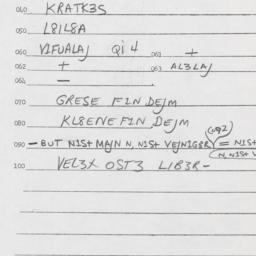 040 KRATK3S
050 L8IL8A
060 VIFUALAJ QI 4 061 +
062 + 063 AL3LAJ
—
070 GRESE FIN DEJM
080 KL8ENE FIN DEJM
090 - BUT NIST MAJN N, NIST VEJNIG8R = NIST
N, NIST V
100 VEL3X OST3 LIB3R -